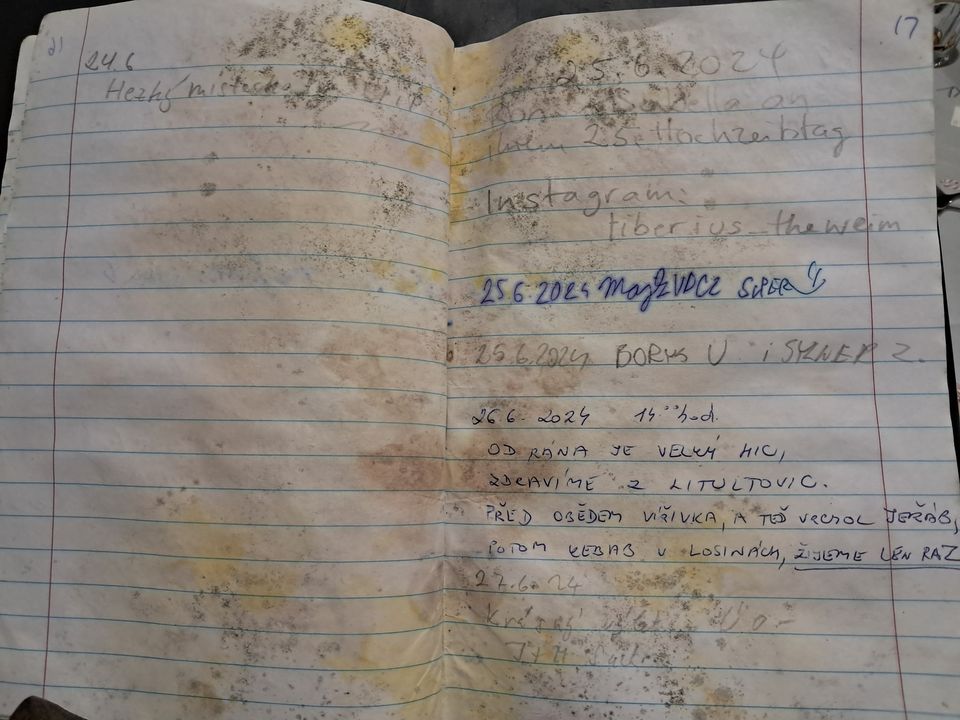 21
24.6
Hezký místečko
17
25.6.2024
Isabella an
ihrem 25. Hochzeitstag
Instagram:
tiberius_theweim
25.6.2024 SUPER
25.6.2024 BORYS U i
26.6. 2024 14:00 hod.
OD RÁNA JE VELKÝ HIC,
ZDRAVÍME Z LITULTOVIC.
PŘED OBĚDEM VÍŘIVKA, A TEĎ VRCHOL JEŘÁB,
POTOM KEBAB V LOSINÁCH, ŽIJEME LEN RAZ
27.6.24
Krásný